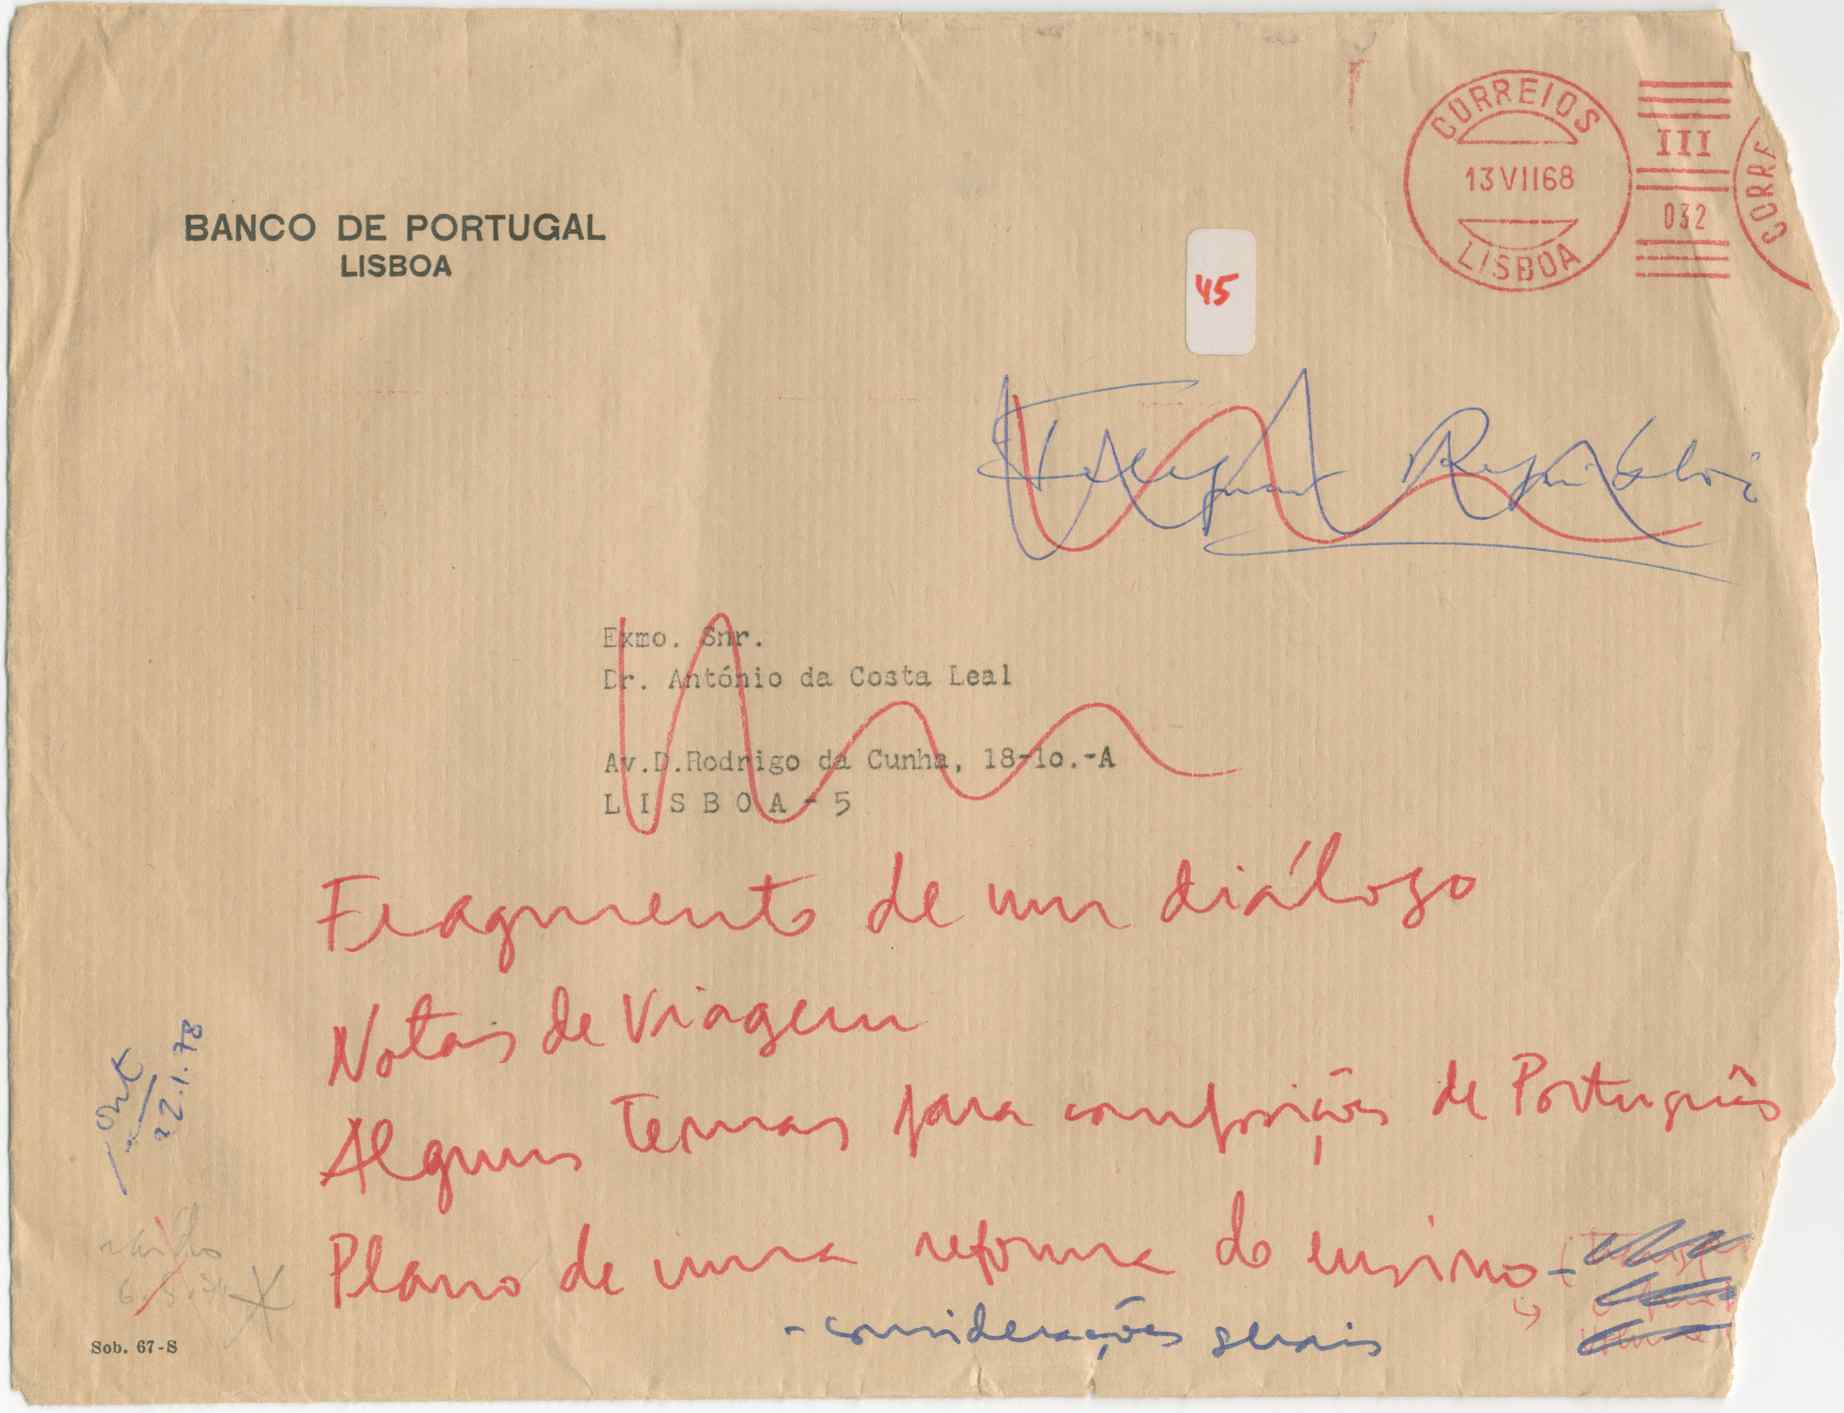 CORREIOS
13 VII 68
LISBOA
III
032
CORRE
BANCO DE PORTUGAL
LISBOA
45
Exmo. Snr.
Dr. António da Costa Leal
Av.D.Rodrigo da Cunha, 18-1o.-A
L I S B O A - 5
Fragmento de um diálogo
Notas de Viagem
Alguns temas para composições de Português
Plano de uma reforma do ensino -
- considerações gerais
22.1.78
Sob. 67-S